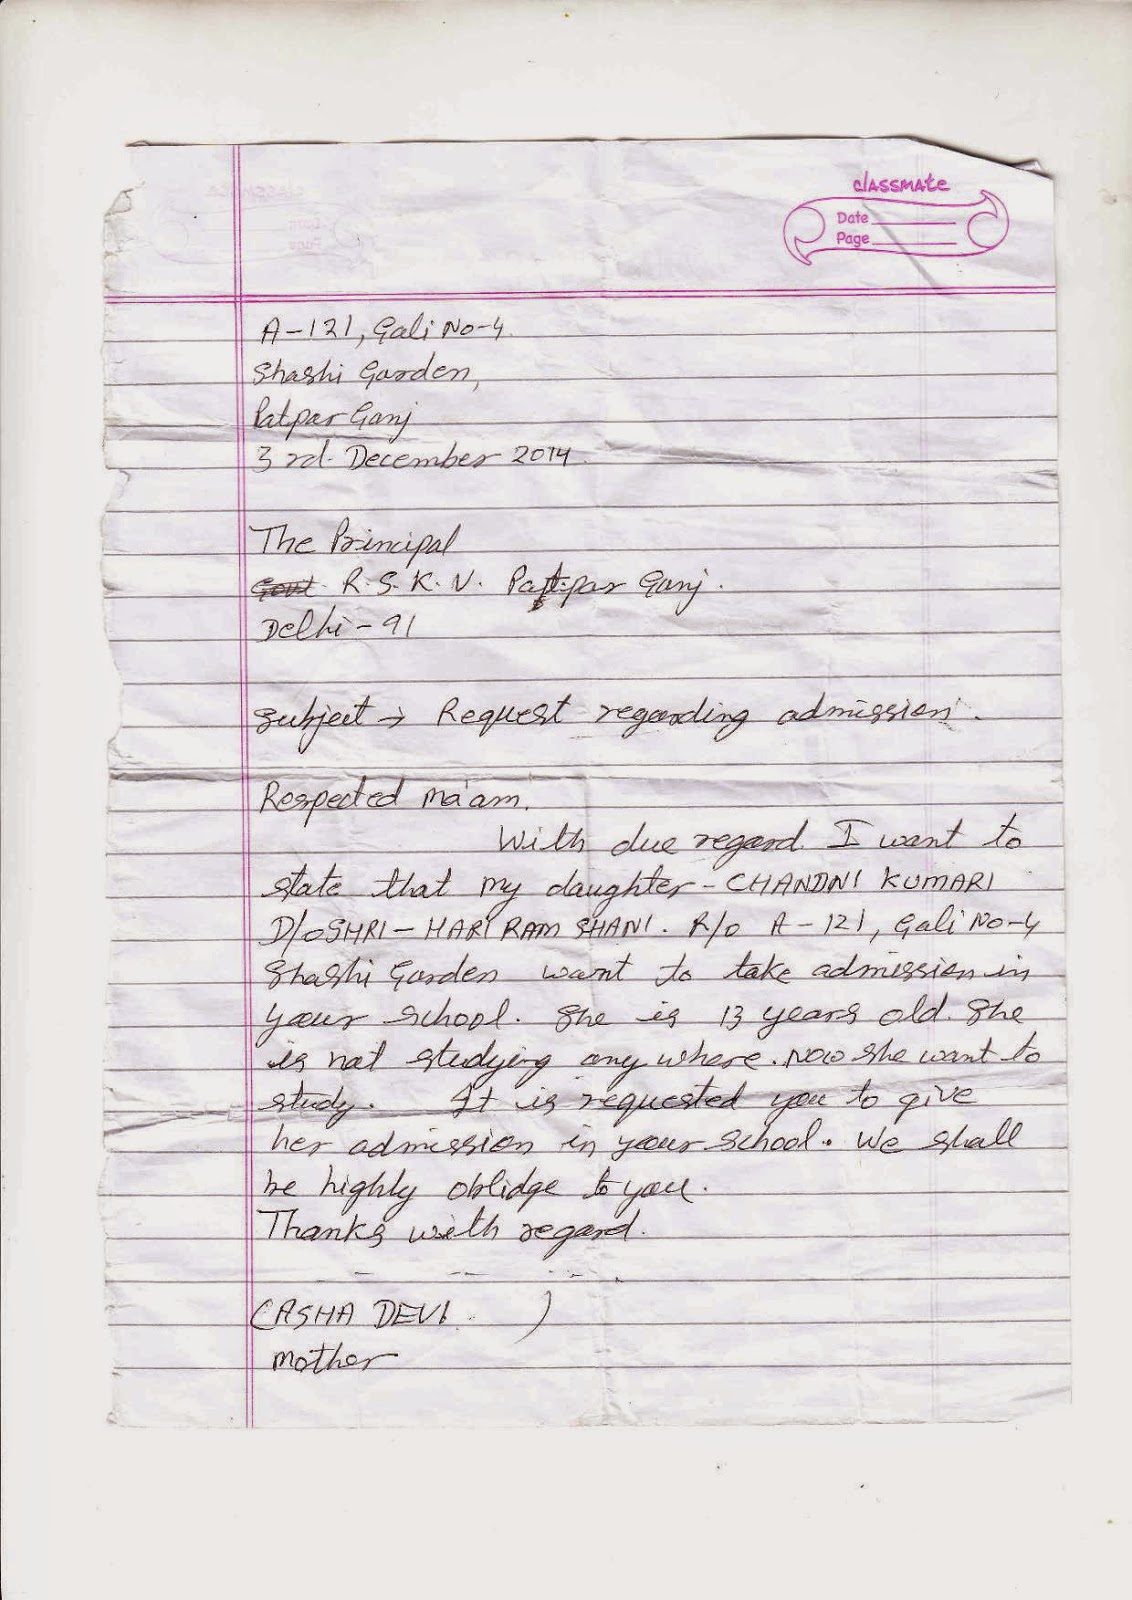 classmate
Date
Page
A-121, Gali No-4.
Shashi Garden,
Patpar Ganj
3rd. December 2014.
The Principal
Govt. R.S.K.V. Patpar Ganj.
Delhi-91
Subject → Request regarding admission.
Respected ma'am,
With due regard I want to
state that my daughter - CHANDNI KUMARI
D/o SHRI - HARI RAM SHANI. R/o A-121, Gali No-4
Shashi Garden want to take admission in
your school. She is 13 years old. She
is not studying any where. Now she want to
study. It is requested you to give
her admission in your school. We shall
be highly oblidge to you.
Thanks with regard.
(ASHA DEVI )
mother